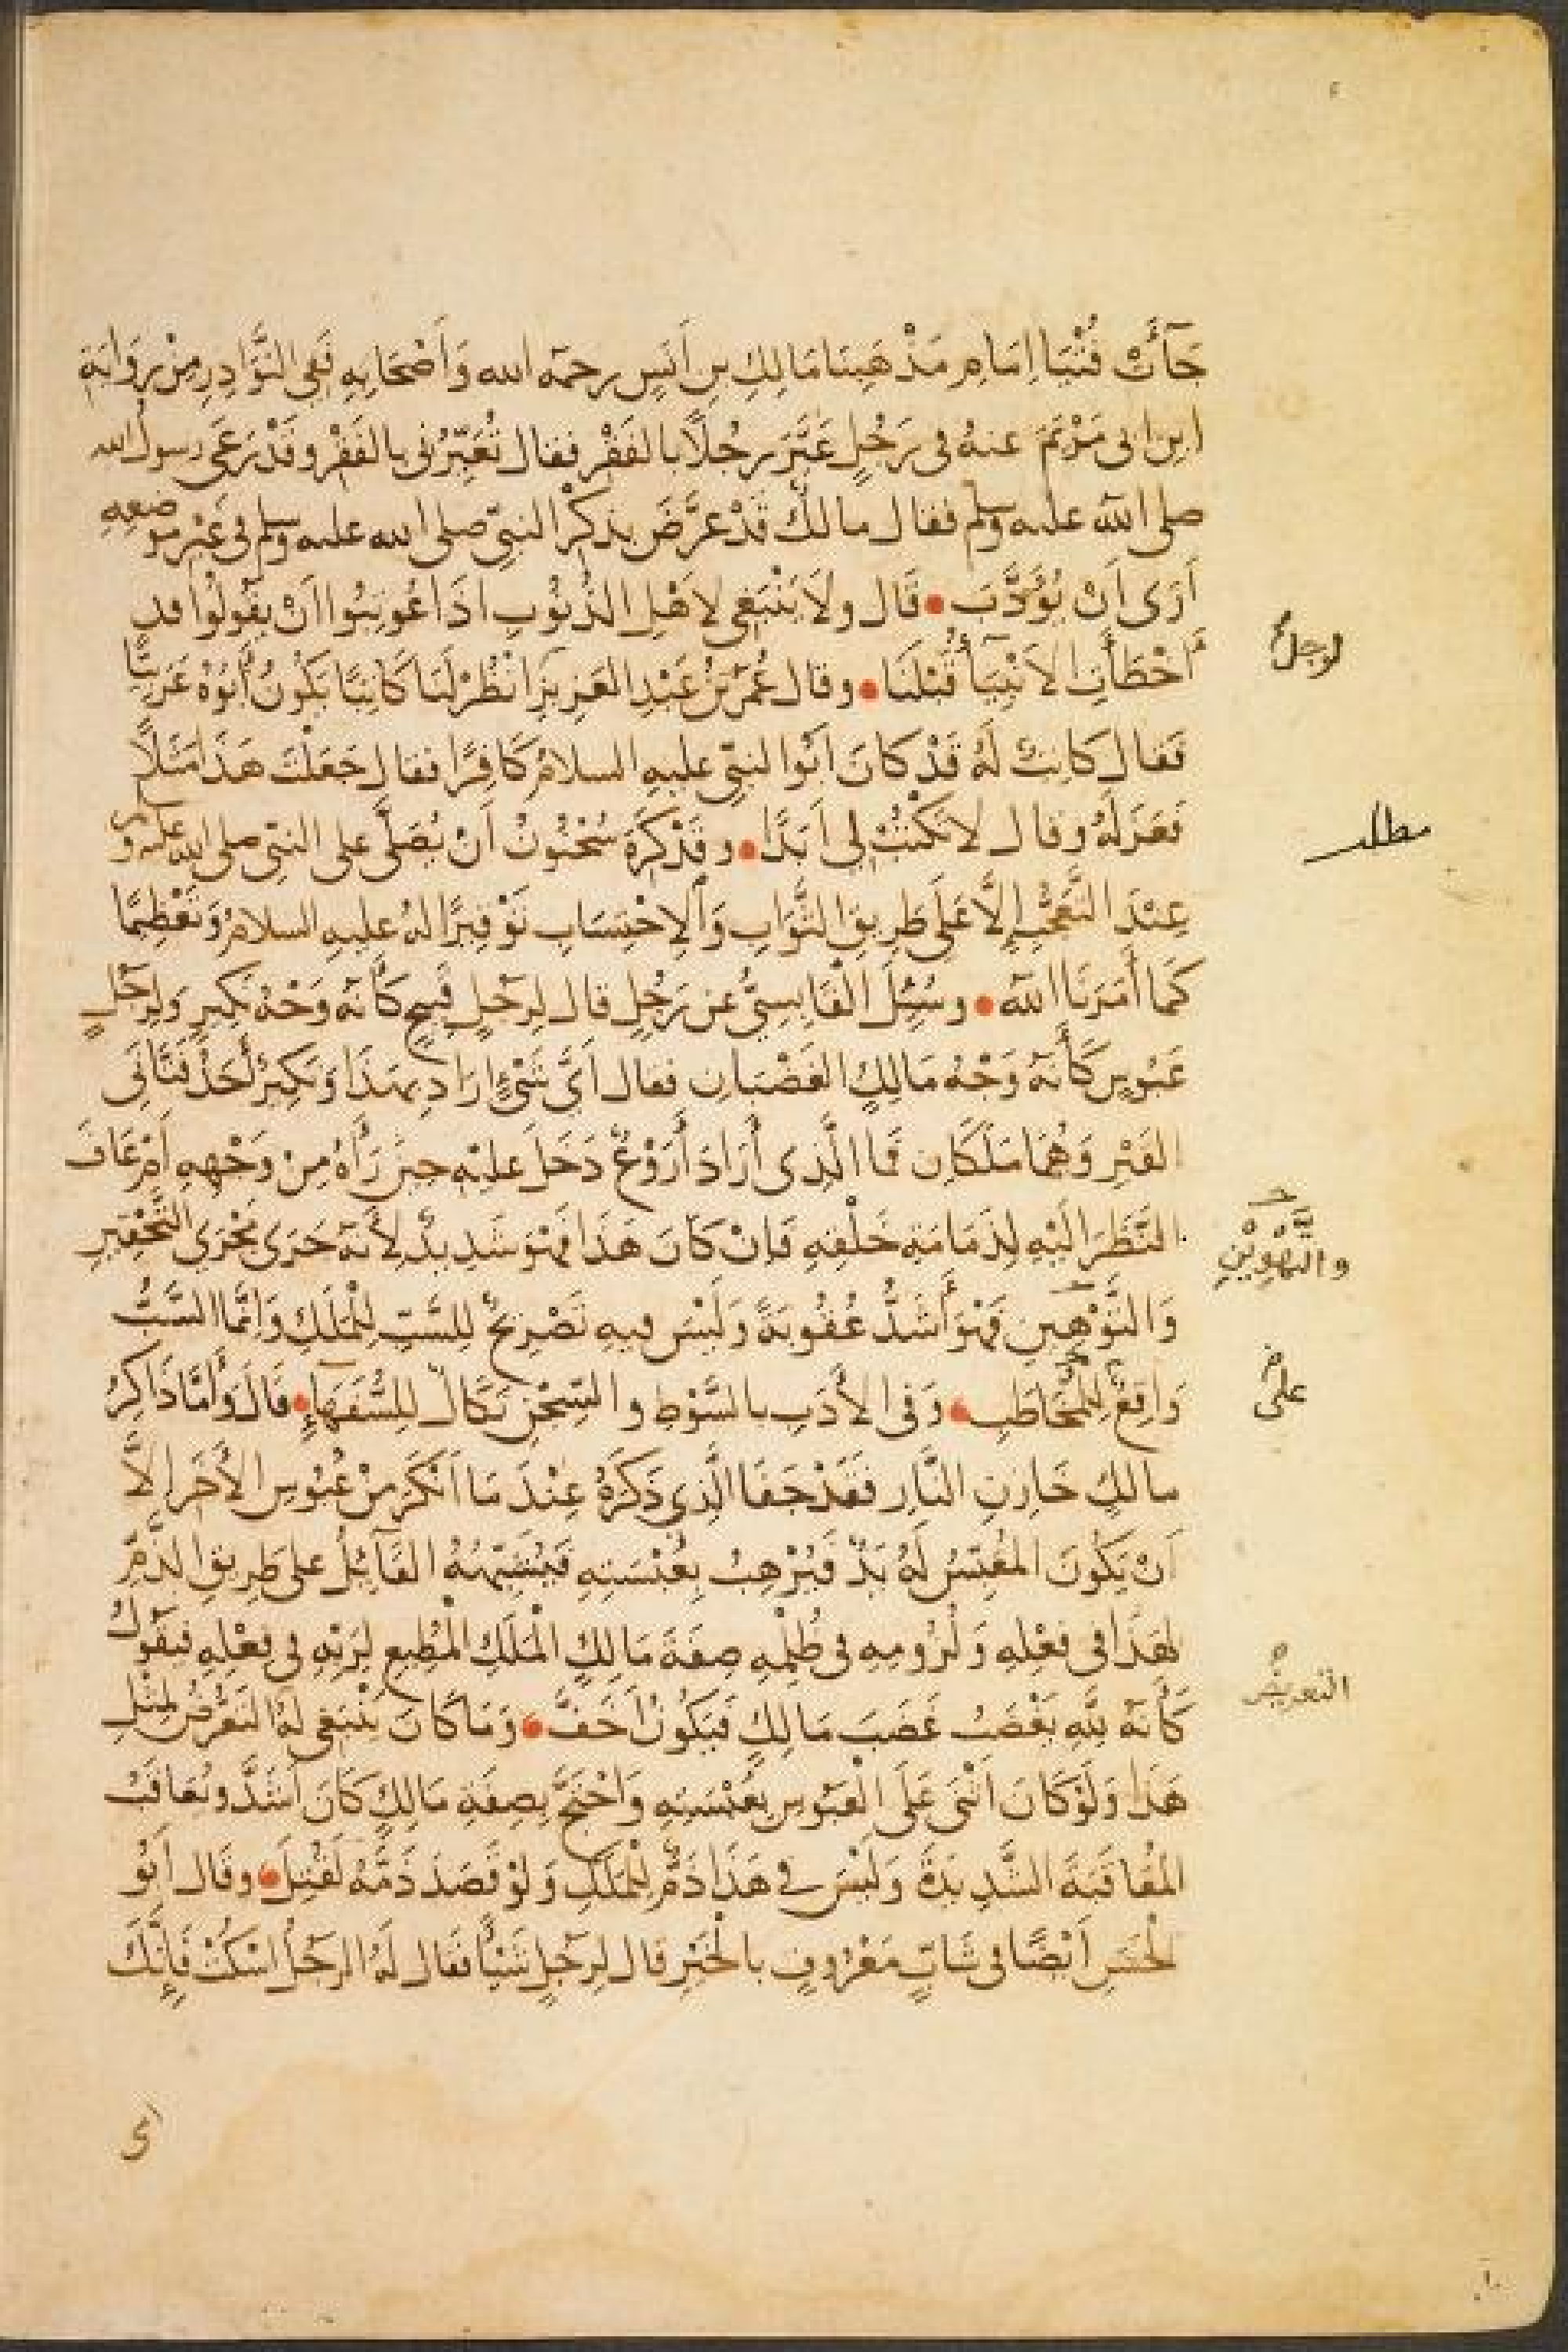 جَآءَتْ فُتْيَا اِمَامِ مَذْهَبِنَا مَالِكِ بنِ أَنَسٍ رحمَه الله وَأَصْحَابِهِ فَفِي النَّوَادِرِ مِنْ رِوَايَةِ
ابنِ ابى مَرْيَمَ عنهُ فى رَجُلٍ عَيَّرَ رجُلًا بالفَقْرِ فقال تُعَيِّرُنى بالفَقْرِ وقَدْ رَعَى رسولُ الله
صلى الله عليه وسلم فقال مالكٌ قَدْ عرَّضَ بذِكْرِ النبىّ صلى الله عليه وسلم فى غَيْرِ موضعِهِ
أَرَى أَنْ يُؤَدَّبَ • قَال ولَا يَنْبَغى لاَهْلِ الذُّنُوبِ اذَا عُوتِبُوا أَنْ يقُولُوا قد
أَخْطَأَتِ الاَنْبِيَآءُ قَبْلَنَا • وقال عُمَرُ بْنُ عَبْدِ العَزِيزِ انْظُرْ لَنَا كَاتِبًا يَكُونُ أَبُوهُ عَرَبِيًّا
فَقال كَاتِبٌ لَهُ قَدْ كانَ أَبُو النبىّ عليهِ السلامُ كَافِرًا فقال جَعَلْتَ هَذَا مَثَلًا
فَعَزَلَهُ وقال لا تَكْتُبْ لِى أَبَدًا • وقَدْ كَرِهَ سُحْنُونُ أَنْ يُصَلَّى على النبىّ صلى الله عليه وسلم
عِنْدَ التَّعَجُّبِ إِلَّا عَلَى طَرِيقِ الثَّوَابِ وَالاِحْتِسَابِ تَوْقِيرًا لهُ عليهِ السلامُ وَتَعْظِيمًا
كَمَا أَمَرَنَا الله • وسُئِلَ الْقَابِسِىُّ عن رَجُلٍ قال لِرَجُلٍ قَبِيحٍ كَأَنَّهُ وَجْهُ نَكِيرٍ وَلِرَجُلٍ
عَبُوسٍ كَأَنَّهُ وَجْهُ مَالِكٍ الغَضْبَانِ فقال أَىَّ شَىْءٍ ارَادَ بِهَذَا وَنَكِيرٌ أَحَدُ فَتَّانَى
القَبْرِ وَهُمَا مَلَكَانِ فَمَا الَّذِى أَرَادَ أَرَوْعٌ دَخَلَ عليْهِ حِينَ رَأَهُ مِنْ وَجْهِهِ أَمْ عَافَ
النَّظَرَ الَيْهِ لِدَمَامَةِ خَلْقِهِ فَإِنْ كَانَ هَذَا فَهُوَ شَدِيدٌ لِأَنَّهُ جَرَى مَجْرَى التَّحْقِيرِ
وَالتَّوْهِينِ فَهُوَ أَشَدُّ عُقُوبَةً وَلَيْسَ فيهِ تَصْرِيحٌ للسَّبِّ لِلْمَلَكِ وَإِنَّمَا السَّبُّ
وَاقِعٌ لِلْمُخَاطَبِ • وَفى الأَدَبِ بالسَّوْطِ والسِّجْنِ نَكَالٌ لِلسُّفَهَاءِ • قالَ وَأَمَّا ذَاكِرُ
مالكٍ خَازِنِ النَّارِ فَقَدْ جَفَا الَّذِى ذَكَرَهُ عِنْدَ مَا أَنْكَرَ مِنْ عُبُوسِ الأَخَرِ إِلَّا
أَنْ يَكُونَ المُعَبِّسُ لَهُ يَدٌ فَيُرْهِبُ بِعُبْسَتِهِ فَيُشَبِّهُهُ القَآئِلُ على طَرِيقِ الذَّمِّ
لِهَذَا فى فِعْلِهِ وَلُزُومِهِ فى ظُلْمِهِ صِفَةَ مَالِكٍ الْمَلَكِ الْمُطِيعِ لِرَبِّهِ فى فِعْلِهِ فَيَقُولُ
كَأَنَّهُ للهِ يَغْضَبُ غَضَبَ مَالِكٍ فَيَكُونُ أَخَفَّ • وَمَا كَانَ يَنْبَغى لَهُ التَعَرُّضُ لِمِثْلِ
هَذَا وَلَوْ كَانَ أَثْنَى عَلَى الْعَبُوسِ بِعُبْسَتِهِ وَاحْتَجَّ بِصِفَةِ مَالِكٍ كَانَ أَشَدَّ ويُعَاقَبُ
المُعَاقَبَةَ الشَّدِيدَةَ وَلَيْسَ فى هَذَا ذَمٌّ لِلْمَلَكِ وَلَوْ قَصَدَ ذَمَّهُ لَقُتِلَ • وقال أَبُو
الحَسَنِ أَيْضًا فى شَابٍّ مَعْرُوفٍ بالْخَيْرِ قال لِرَجُلٍ شَيْأً فَقال لَهُ الرجُلُ اسْكُتْ فَإِنَّكَ
لرجلٍ
مطلب
والتَّهْوِيْنِ
على
التعريض